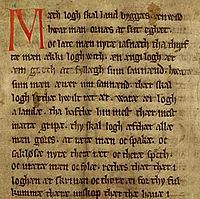 Mæth logh skal land byggæs. æn wild
hwar man oruæs at sit eghet.
oc late mæn nytæ iafnæth tha thyrf
tæ mæn ækki logh with. æn ængi logh ær
æm goth at fyllugh sum sannænd. hwaræ
sum mæn æuær um sannænd. thær skal
logh letæ hwilt ræt ær. waræ æi logh
a landæ. tha hafthæ hin mest thær mest
mattæ gripæ. thy skal logh æfthær allæ
mæn gøræs. at rætæ mæn oc spakæ. oc
saklösæ nytæ theræ ræt oc theræ spækh.
oc urætæ mæn oc folæ. ræthæs thæt thær i
loghæn ær skriuæn oc thoræ æi for thy ful
kumnæ theræ unskap thær thæ hauæ i